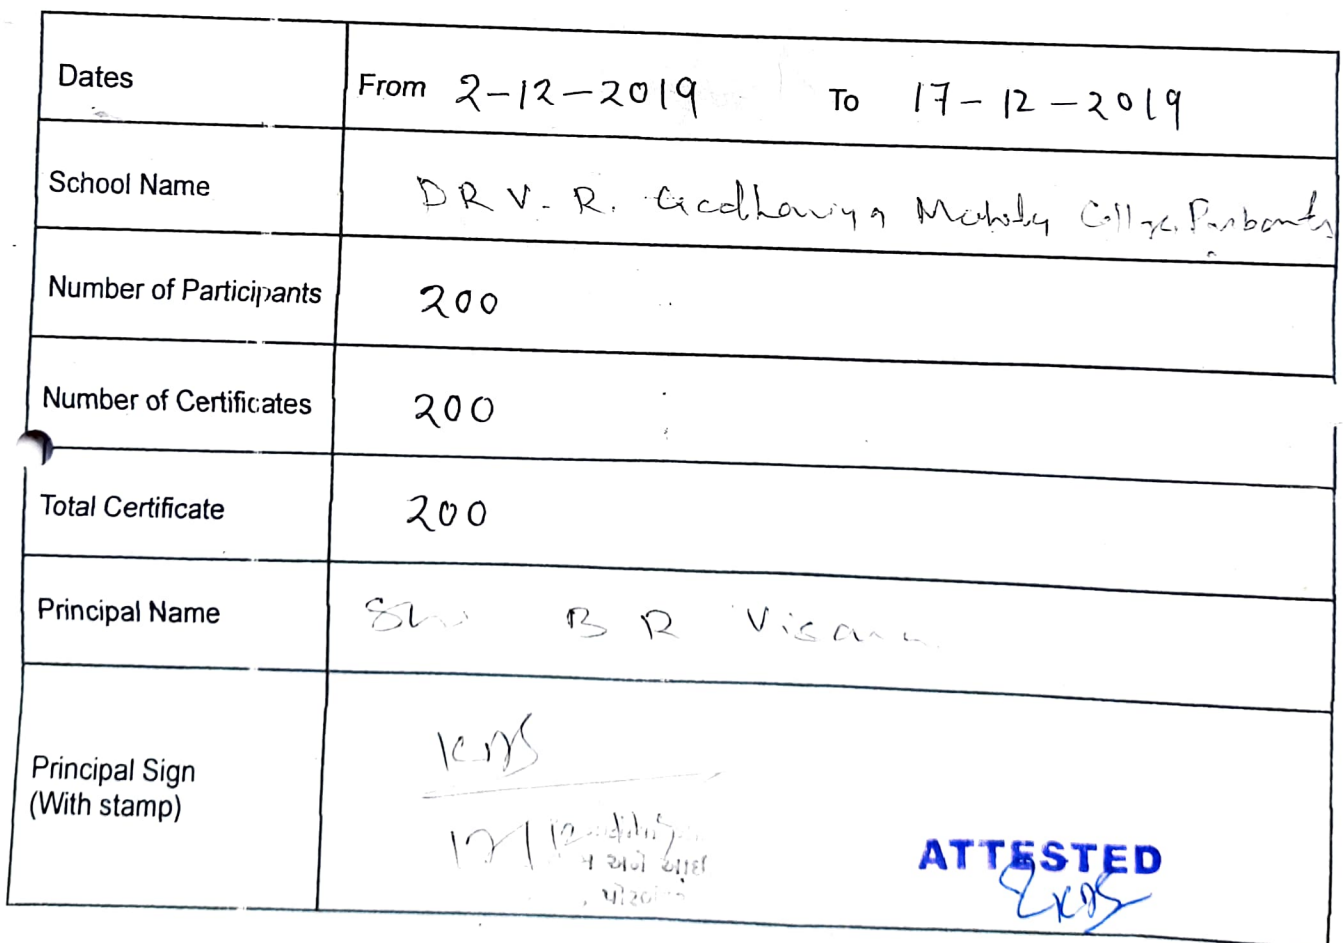 Dates From 2-12-2019 To 17-12-2019
School Name DR V. R. Godhaniya
Number of Participants 200
Number of Certificates 200
Total Certificate 200
Principal Name B R
Principal Sign
(With stamp)
અને
ATTESTED